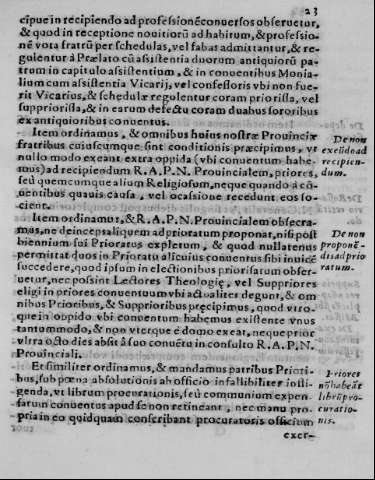 23
cipue in recipiendo ad professionẽ conuersos obseruetur,
& quod in receptione nouitiorũ ad habitum, & professio-
nẽ vota fratrũ per schedulas, vel fabas admittantur, & re-
gulentur à Prælato cũ assistentia duorum antiquiorũ pa-
trum in capitulo assistentium, & in conuentibus Monia-
lium cum assistentia Vicarij, vel confessoris vbi non fue-
rit Vicarius, & schedulæ regulentur coram priorissa, vel
suppriorissa, & in earum defectu coram duabus sororibus
ex antiquioribus conuentus.
Item ordinamus, & omnibus huius nostræ Prouinciæ
fratribus cuiuscumque sint conditionis præcipimus, vt
nullo modo exeant extra oppida (vbi conuentum habe-
mus) ad recipiendum R. A. P. N. Prouincialem, priores,
seù quemcumque alium Religiosum, neque quando à cõ-
uentibus quauis causa, vel ocasione recedunt eos so-
cient.
De non
exeũdo ad
recipien-
dum.
Item ordinamus, & R. A. P. N. Prouincialem obsecra-
mus, ne deinceps aliquem ad prioratum proponat, nisi post
biennium sui Prioratus expletum, & quod nullatenus
permittat duos in Prioratu alicuius conuentus sibi inuicẽ
succedere, quod ipsum in electionibus priorisarum obser-
uetur, nec possint Lectores Theologię, vel Suppriores
eligi in priores conuentuum vbi actualiter degunt, & om
nibus Prioribus, & Supprioribus pręcipimus, quod vtro-
que in oppido vbi conuentum habemus existente vnus
tantummodo, & non vterque è domo exeat, neque prior
vltra octo dies absit à suo conuẽtu in consulto R. A. P. N.
Prouinciali.
De non
proponẽ-
dis ad prio
ratum.
Et similiter ordinamus, & mandamus patribus Priori-
bus, sub pœna absolutionis ab officio infallibiliter infli-
genda, vt librum procurationis, seù communium expen
sarum conuentus apud se non retineant, nec manu pro-
pria in eo quidquam conscribant procuratoris officium
Priores
nõ habeãt
librũ pro-
curatio-
nis.
exer-